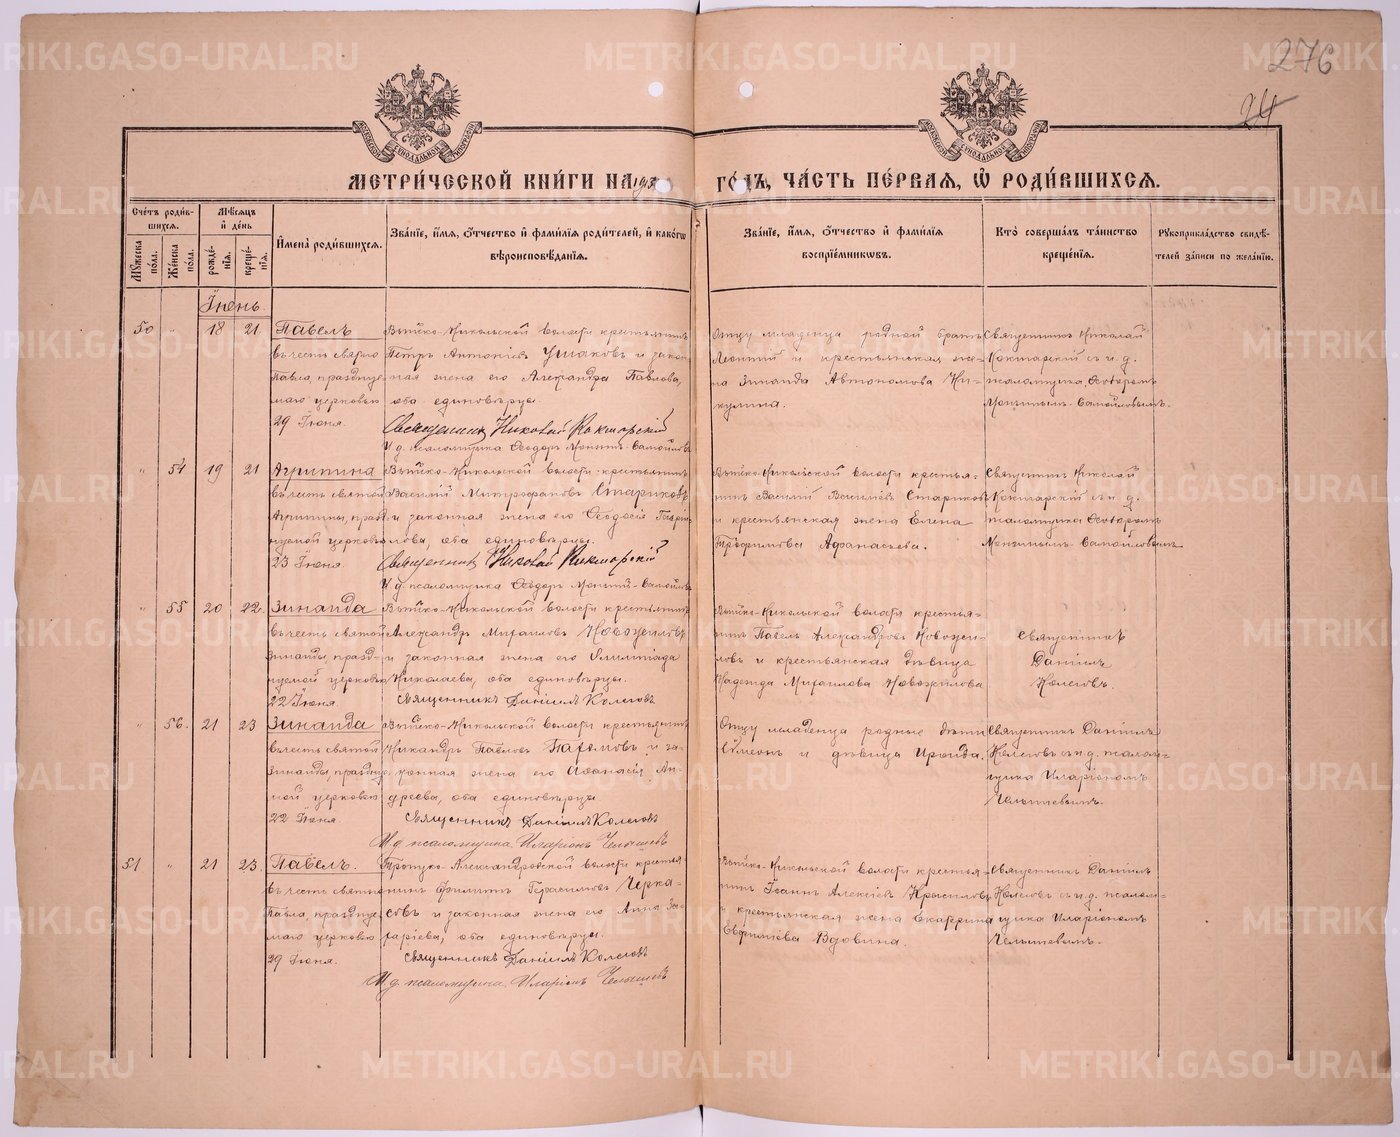 276
24
МЕТРИ́ЧЕСКОЙ КНИ́ГИ НА 191
ГО́ДЪ, ЧА́СТЬ ПЕ́РВАЯ, Ѽ РОДИ́ВШИХСЯ.
Сче́тъ роди́в-
шихся.
Мꙋ́жеска по́ла.
Же́нска по́ла.
Мѣ́сяцъ и҆ де́нь
рожде́нїя.
креще́нїя.
И҆мена̀ роди́вшихся.
Зва́нїе, и҆́мя, ѻ҆́тчество и҆ фами́лїя роди́телей, и҆ како́гѡ
вѣроисповѣ́данїя.
Зва́нїе, и҆́мя, ѻ҆́тчество и҆ фами́лїя
воспрїе́мникѡвъ.
Кто̀ соверша́лъ та́инство
креще́нїя.
Рꙋкоприкла́дство свидѣ́-
телей за́писи по жела́нїю.
Іюнь.
50 " 18 21
Павелъ
въ честь св. арх.
Павла, праздну-
маго церковью
29 Іюня.
Выйско-Никольской волости крестьянинъ
Петръ Антоніевъ Ушаковъ и закон-
ная жена его Александра Павлова,
оба единовѣрцы.
Священникъ Николай Кокшарскій
И. д. псаломщика Ѳеодоръ Мокѣинъ-Самойловъ
Отцу младенца родной братъ
Леонтій и крестьянская же-
на Зинаида Автономова Ни-
кулина.
Священникъ Николай
Кокшарскій съ и. д.
псаломщика Ѳеодоромъ
Самойловымъ.
" 54 19 21
Агрипина
въ честь святой
Агрипины, празд-
нуемой церковью
23 Іюня.
Выйско-Никольской волости крестьянинъ
Василій Митрофановъ Стариковъ
и законная жена его Ѳеодосія
оба единовѣрцы.
Священникъ Николай Кокшарскій
И. д. псаломщика Ѳеодоръ Мокѣинъ-Самойловъ
Выйско-Никольской волости крестья-
нинъ Василій Васильевъ Стариковъ
и крестьянская жена Елена
Трофимова Аѳанасьева.
Священникъ Николай
Кокшарскій съ и. д.
псаломщика Ѳеодоромъ
Самойловымъ
" 55 20 22.
Зинаида
въ честь святой
Зинаиды, празд-
нуемой церковью
22 Іюня.
Выйско-Никольской волости крестьянинъ
Александръ Михаиловъ Новожиловъ
и законная жена его Олимпіада
Николаева, оба единовѣрцы.
Священникъ Даніилъ Колеговъ
Выйско-Никольской волости крестья-
нинъ Павелъ Александровъ Новожи-
ловъ и крестьянская дѣвица
Надежда Михаилова Новожилова
Священникъ
Даніилъ
Колеговъ.
" 56. 21 23
Зинаида
въ честь святой
Зинаиды, праздну-
мой церковью
22 Іюня.
Выйско-Никольской волости крестьянинъ
Никандръ Павловъ и за-
конная жена его Аѳанасія Ан-
дреева, оба единовѣрцы
Священникъ Даніилъ Колеговъ
И. д. псаломщика Иларіонъ Челышевъ
Отцу младенца родные дѣти
Симеонъ и дѣвица Ираида.
Священникъ Даніилъ
Колеговъ съ и. д. псалом-
щика Иларіономъ
Челышевымъ.
51 " 21 23.
Павелъ.
въ честь святаго
Павла, праздну-
маго церковью
29 Іюня.
Троицко-Александровской волости крестья-
нинъ Филиппъ Герасимовъ Черка-
совъ и законная жена его Анна За-
харіева, оба единовѣрцы.
Священникъ Даніилъ Колеговъ
И. д. псаломщика Иларіонъ Челышевъ
Выйско-Никольской волости крестья-
нинъ Іоаннъ Алексіевъ Красиловъ
и крестьянская жена Екатерина
Евфиміева Вдовина.
Священникъ Даніилъ
Колеговъ съ и. д. псалом-
щика Иларіономъ
Челышевымъ.
METRIKI.GASO-URAL.RU